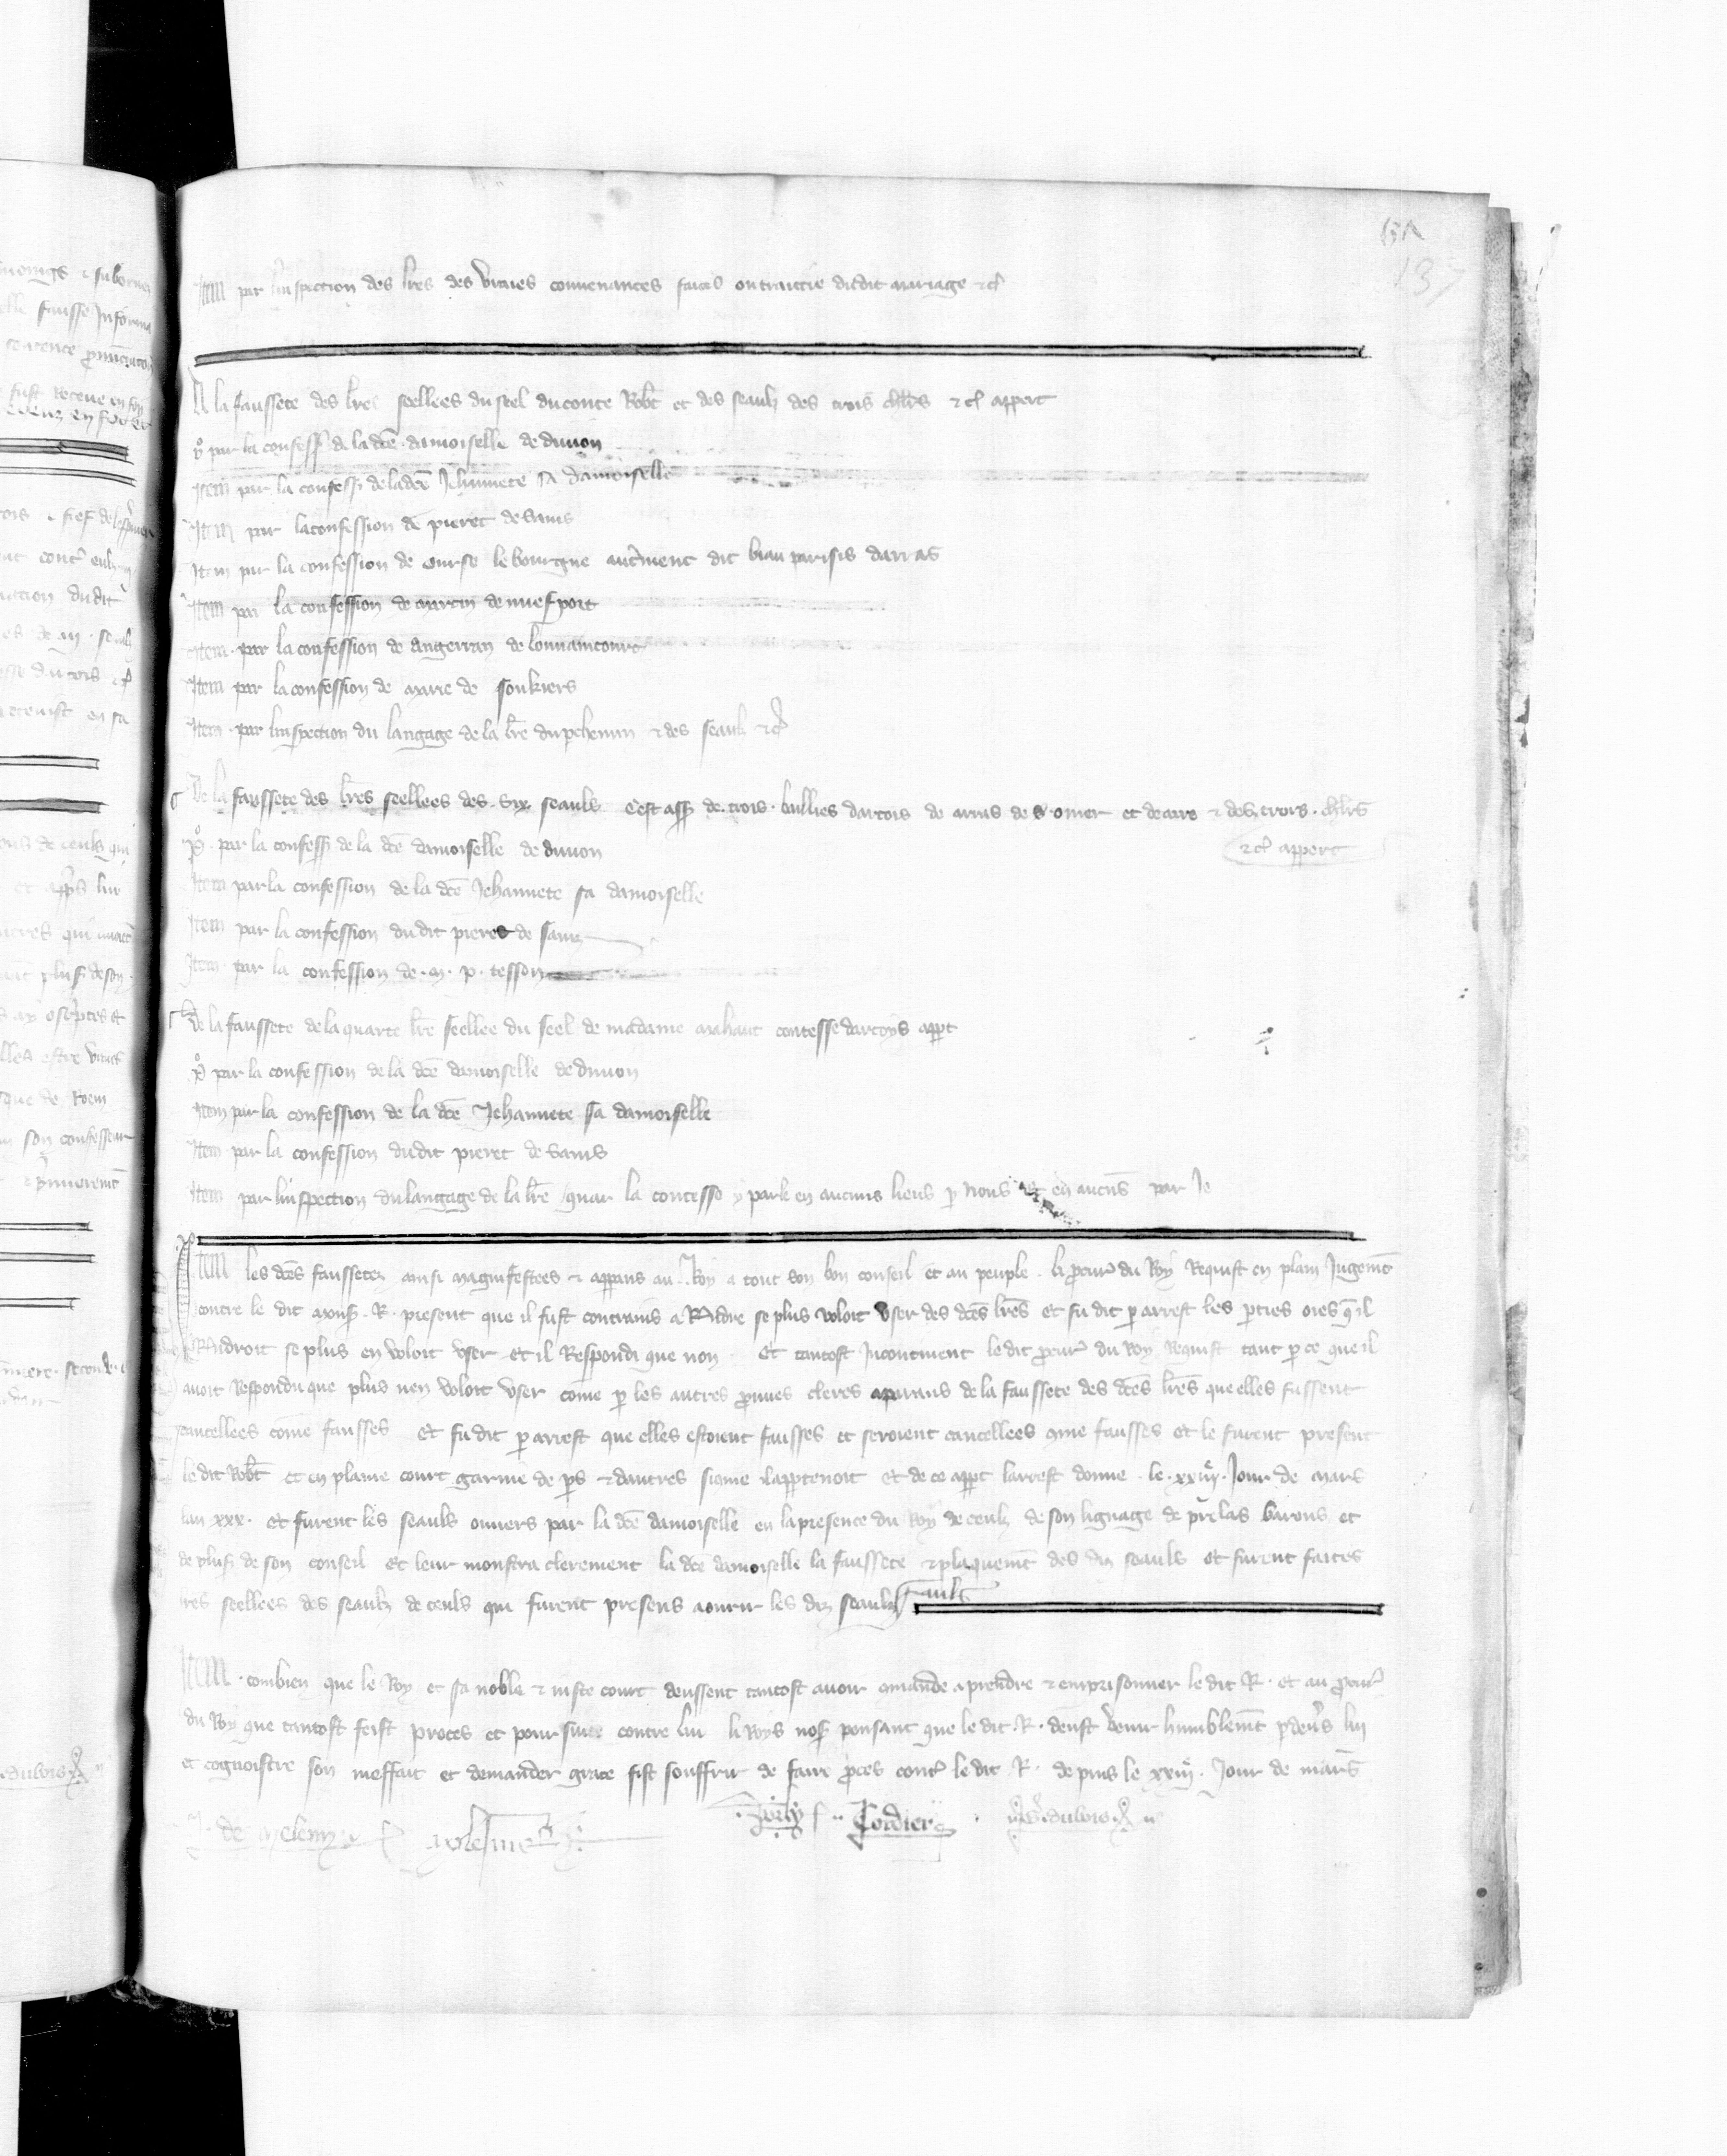 137
Item par linspection des lres des vraies convenances faites ou traictie dudit mariage etc
A la faussete des lres seellees du seel du conte Robt et des seaulz des trois chlrs etc appert
po par la confess de la dce damoiselle de divion
Item par la confess de la dce Jehannete sa damoiselle
Item par la confession de pieret de sains
Item par la confession de ourse le bourgne autrement dit biau parisis darras
Item par la confession de martin de nuefport
Item par la confession de angerran de
Item par la confession de marie de foukiers
Item par linspection du langage de la lre du pchemin et des seaulz etc
De la faussete des lres seellees des six seauls cest ass de trois baillies dartois de arras de s omer et de aire et des trois chlrs
etc appert
po par la confess de la dce damoiselle de divion
Item par la confession de la dce Jehannete sa damoiselle
Item par la confession du dit pieret de sains
Item par la confession de m p tesson
De la faussete de la quarte lre seellee du seel de madame mahaut contesse dartoys appt
po par la confession de la dce damoiselle de divion
Item par la confession de la dce Jehannete sa damoiselle
Item par la confession du dit pieret de sains
Item par linspection du langage de la lre quar la contesse y parle en aucuns lieus p nous et en aucus par Je
Item les dces faussetez ainsi magnifestees et appans au Roy a tout son bon conseil et au peuple li pcur du Roy Requist en plain Jugemt
contre le dit mons R present que il fust contrains a Rndre se plus voloit user des dces lres et fu dit p arrest les pties oies qil
Rndroit se plus en voloit user et il Respondi que non et tantost Incontinent le dit pcur du Roy Requist tant p ce que il
avoit Respondu que plus nen voloit user come p les autres pruves cleres apparans de la faussete des dces lres que elles fussent
cancellees come fausses et fu dit p arrest que elles estoient fausses et seroient cancellees come fausses et le furent present
le dit Robt et en plaine court garnie de ps et dautres sicome il apptenoit et de ce appt larrest donne le xxiii Jour de mars
lan xxx et furent les seauls ouvers par la dce damoiselle en la presence du Roy de ceulz de son lignage de prelas barons et
de plus de son conseil et leur monstra clerement la dce damoiselle la faussete et plaquemt des diz seauls et furent faites
lres seellees des seaulz de ceuls qui furent presens a ouvrir les diz seaulz
Item combien que le Roy et sa noble et juste court deussent tantost avoir comande a prendre et emprisonner le dit R et au pcur
du Roy que tantost feist proces et poursuite contre lui li Roys nos pensant que le dit R deust venir humblemt pdevs lui
et cognoistre son meffait et demander grace fist souffrir de faire pces cont le dit R depuis le xxiii Jour de mars
J de meleny Cordier dubois